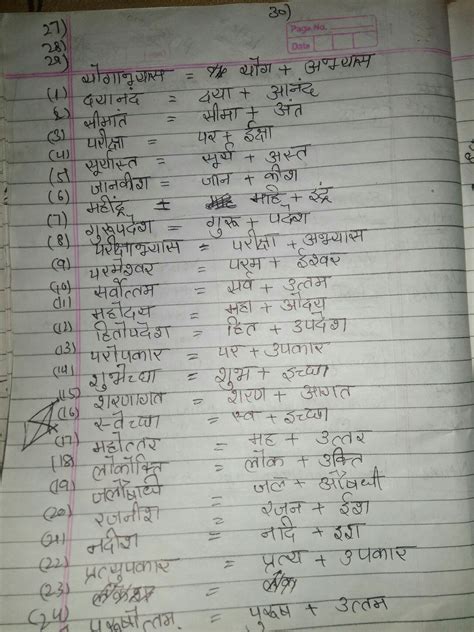 30)
Page No.
Date
27)
28)
29)
योगाभ्यास = योग + अभ्यास
(1) दयानंद = दया + आनंद
2) सीमांत = सीमा + अंत
(3) परीक्षा = पर + ईक्षा
(4) सूर्यास्त = सूर्य + अस्त
(5) जानकीश = जान + कीश
(6) महींद्र = माहि + इंद्र
(7) गुरूपदेश = गुरू + पदेश
(8) परीक्षाभ्यास = परीक्षा + अभ्यास
(9) परमेश्वर = परम + ईश्वर
(10) सर्वोत्तम = सर्व + उत्तम
(11) महोदय = महा + ओदय
(12) हितोपदेश = हित + उपदेश
(13) परोपकार = पर + उपकार
(14) शुभेच्छा = शुभ + इच्छा
(15) शरणागत = शरण + आगत
(16) स्वेच्छा = स्व + इच्छा
(17) महोत्तर = मह + उत्तर
(18) लोकोक्ति = लोक + उक्ति
(19) जलौषधी = जल + औषधी
(20) रजनीश = रजन + ईश
(21) नदीश = नदि + इश
(22) प्रत्युपकार = प्रत्य + उपकार
(23) =
(24) पुरूषोत्तम = पुरूष + उत्तम